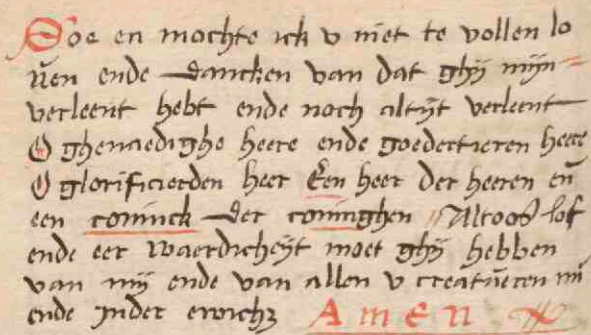 Soe en mochte ick v niet te vollen lo
uen ende dancken van dat ghij mijn
verleent hebt ende noch altijt verleent
O ghenaedighe heere ende goedertieren heere
O glorificierden heer Een heer der heeren en̄
een coninck der coninghen // Altoos lof
ende eer waerdicheijt moet ghij hebben
van mij ende van allen v creatueren nu
ende inder ewich
AMEN